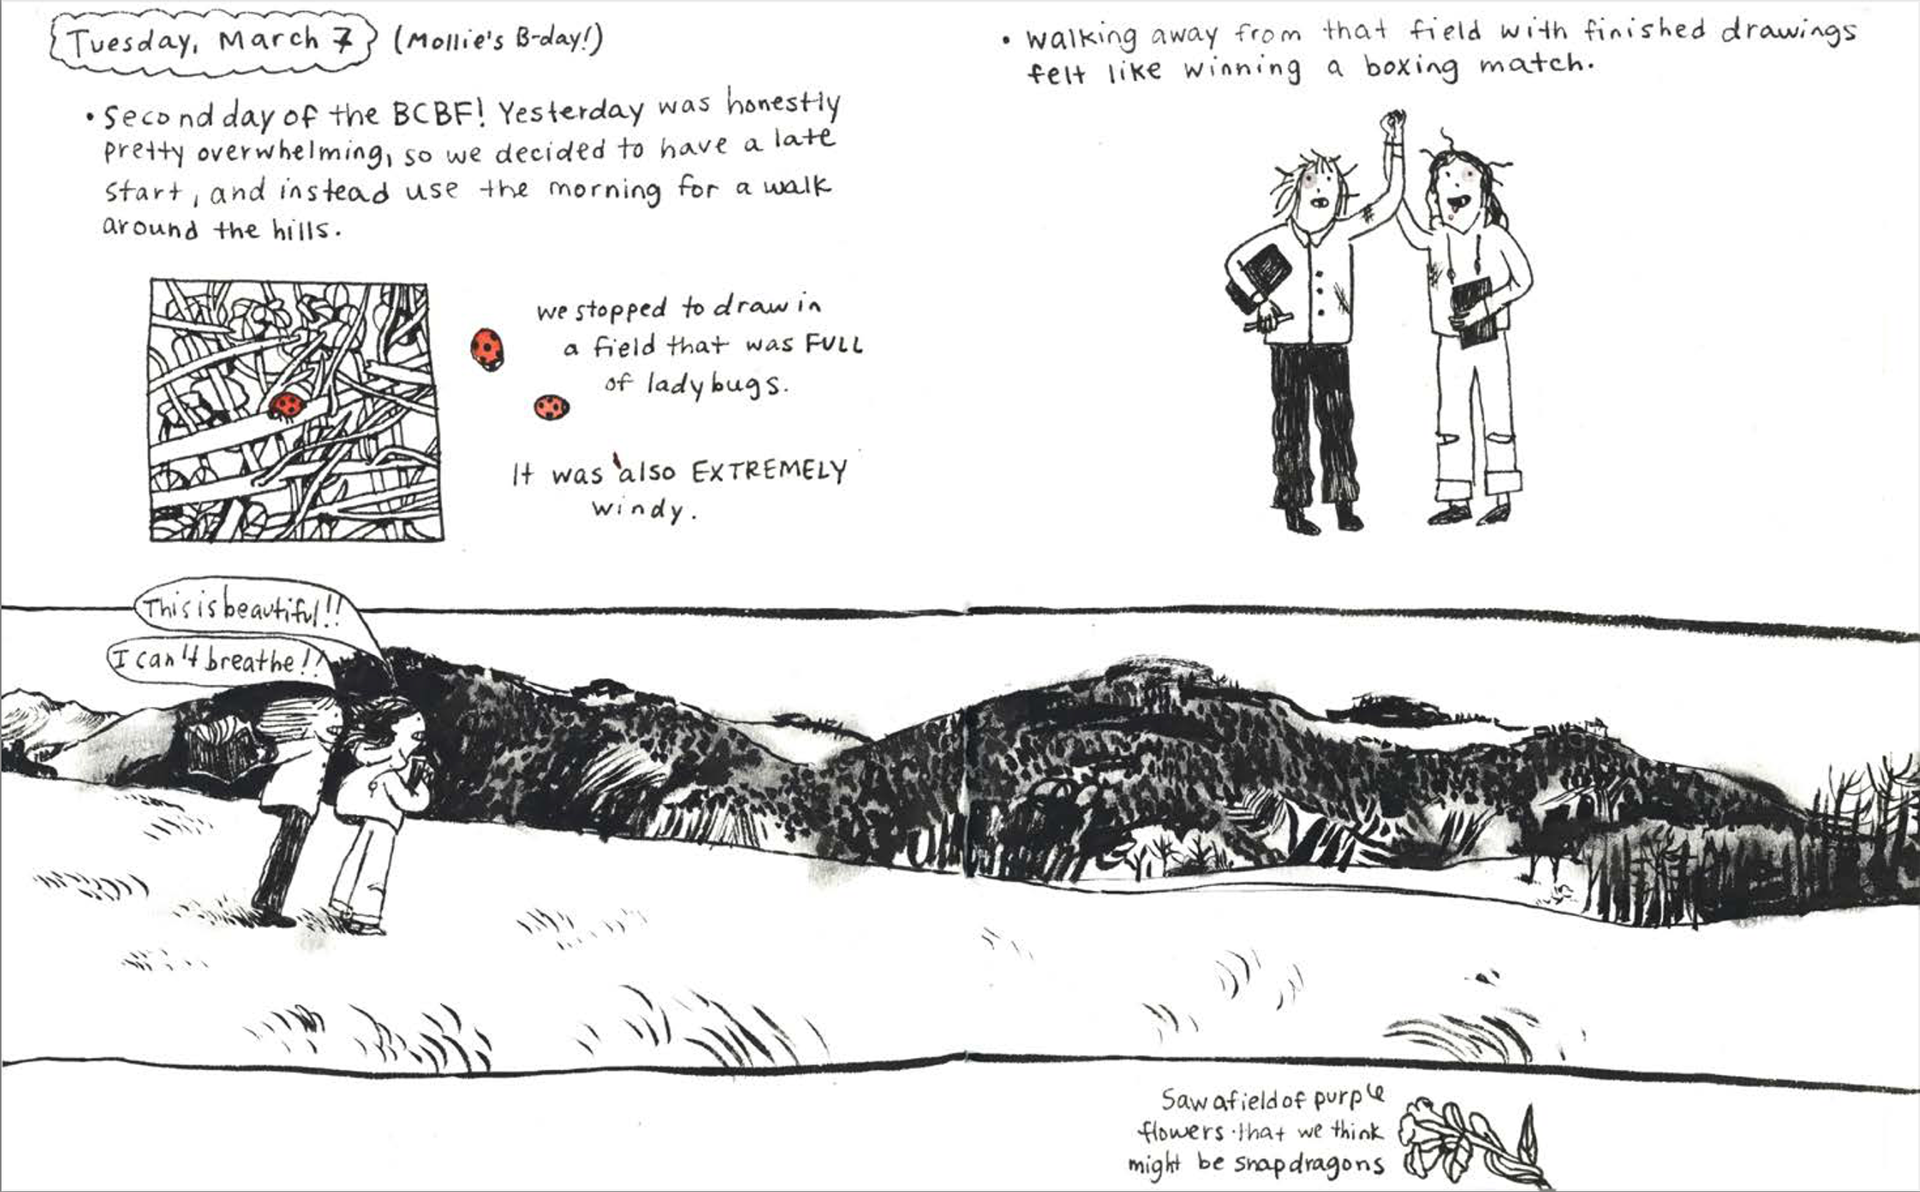 Tuesday, March 7 (Mollie's B-day!)
• Second day of the BCBF! Yesterday was honestly
pretty overwhelming, so we decided to have a late
start, and instead use the morning for a walk
around the hills.
we stopped to draw in
a field that was FULL
of ladybugs.
It was also EXTREMELY
windy.
• walking away from that field with finished drawings
felt like winning a boxing match.
This is beautiful!!
I can't breathe!!
Saw a field of purple
flowers that we think
might be snapdragons